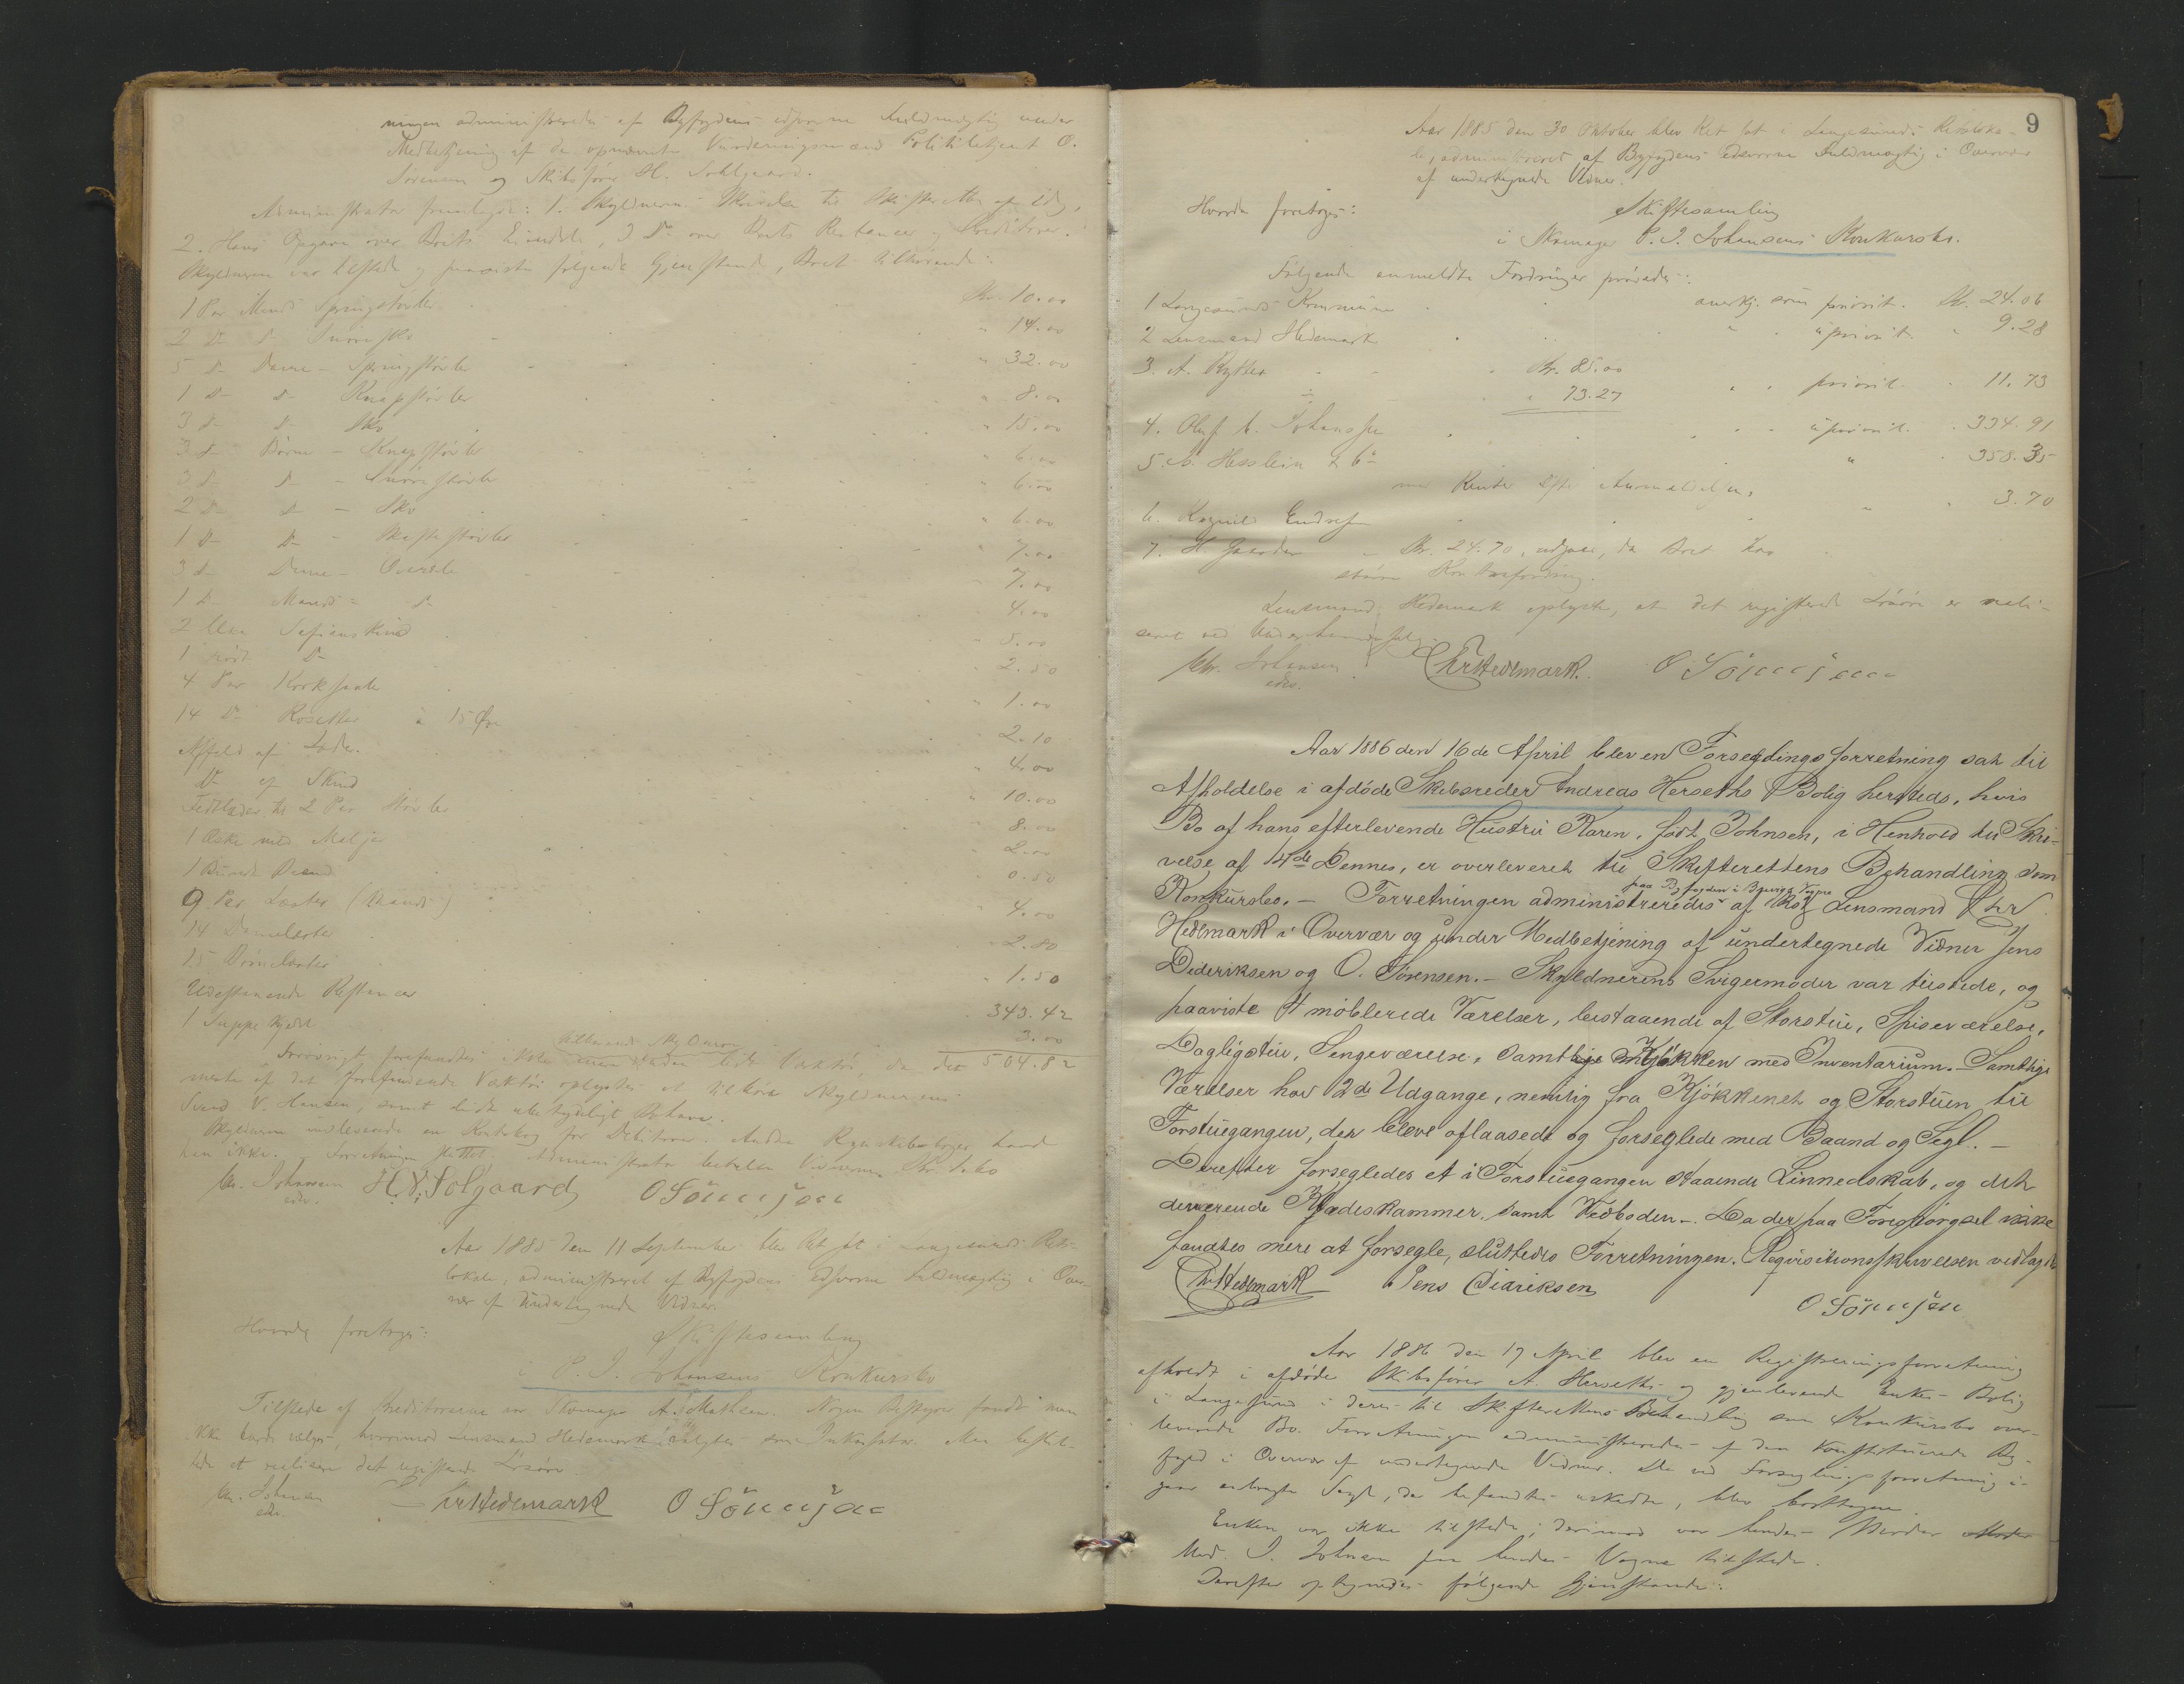 ningen administreredes af Byfogdens edsvorne Fuldmægtig under
Medbetjening af de opnævnte Vurderingsmænd Politibetjent O.
Sörensen og Skibsfører H. Solgaard.
Administrator fremlagde: 1. Skyldnerens Skrivelse til Skifteretten af Idag,
2. Hans Opgave over Boets Eiendele, 3 Do over Boets Restancer og Kreditorer.
Skyldneren var tilstede og paaviste følgende Gjenstande, Boet tilhørende:
1 Par Mands Springstøvler Kr. 10.00
2 Do Do Snøresko " 14.00
5 Do Dame - Springstøvler " 32.00
1 Do Do Knapstøvler " 8.00
3 Do Do Sko " 15.00
3 Do Børne - Knapstøvler " 6.00
3 Do Do - Snørestøvler " 6.00
2 Do Do - Sko " 6.00
1 Do Do - Skaftestøvler " 7.00
3 Do Dame - Overdele " 7.00
1 Do Mands - Do " 4.00
2 Safianskind " 5.00
1 rødt Do " 2.50
4 Par Korksaaler " 1.00
14 Do Rosetter à 15 Øre " 2.10
Affald af Læder " 4.00
Do af Skind " 10.00
Fedtlæder til 2 Par Støvler " 8.00
1 Æske med Maljer " 2.00
1 Bundt " 0.50
9 Par Læster (Mands) " 4.00
14 Damelæster " 2.80
15 Børnelæster " 1.50
Udestaaende Restancer " 343.42
1 Suppekjedel " 3.00
504.82
Forøvrigt forefandtes ikke uden lidt Værktøi, da det
meste af det forefundende Værktøi oplystes at tilhøre Skyldnerens
Svend V. Hansen, samt lidt ubetydeligt Bohave.
Skyldneren medleverede en Kontrabog for Debitorer. Andre Regnskabsbøger havde
han ikke. - Forretningen sluttet. Administrator betalte Vidnerne
Chr. Johnsen H. N. Solgaard O Sörensen
edsv.
Aar 1885 den 11 September blev Ret sat i Langesunds Rets-
lokale, administreret af Byfogdens edsvorne Fuldmægtig i Over-
vær af undertegnede Vidner.
Hvorda foretoges:
Skiftesamling
i P. J. Johansens Konkursbo
Tilstede af Kreditorerne var Skomager A. Mathsen. Nogen Bestyrer fandt man
ikke burde vælges, hvorimod Lensmand Hedemark valgtes som Inkassator. Man beslut-
tede at realisere det registrerede Løsøre.
Chr. Johnsen Chr Hedemark O Sörensen
edsv.
9
Aar 1885 den 30 Oktober blev Ret sat i Langesunds Retsloka-
le, administreret af Byfogdens edsvorne Fuldmægtig i Overvær
af undertegnede Vidner.
Hvorda foretoges:
Skiftesamling
i Skomager P. J. Johansens Konkursbo.
Følgende anmeldte Fordringer prøvedes:
1 Langesunds Kommune anerkj. som priorit. Kr. 24.06
2 Lensmand Hedemark " " upriorit. " 9.28
3. A. Rytter Kr. 85.00
" 73.27 " " priorit. " 11.73
4. Oluf A. Johanssen " " upriorit. " 334.91
5. A. Hesslein & Co " " 358.35
med Renter efter Anmeldelsen.
6. Ragnild Endresen " " 3.70
7. H Gaarder - Kr. 24.70, udgaar, da Boet har
større Kontrafordring.
Lensmand Hedemark oplyste, at det registrerede Løsøre er reali-
seret ved Underhaandssalg.
Chr. Johnsen Chr Hedemark. O Sörensen
edsv.
Aar 1886 den 16de April blev en Forseglingsforretning sat til
Afholdelse i afdöde Skibsreder Andreas Herseths Bolig hersteds, hvis
Bo af hans efterlevende Hustru Karen, født Johnsen, i Henhold til Skri-
velse af 14de Dennes, er overleveret til Skifterettens Behandling som
Konkursbo. - Forretningen administreredes paa Byfogden i Brevigs Vegne af Lensmand Chr
Hedemark i Overvær og under Medbetjening af undertegnede Vidner Jens
Dideriksen og O. Sörensen. - Skyldnerens Svigermoder var tilstede, og
paaviste 4 möblerede Værelser, bestaaende af Storstue, Spiseværelse,
Dagligstue, Sengeværelse, samt Kjökken med Inventarium. - Samtlige
Værelser har 2de Udgange, nemlig fra Kjökkenet og Storstuen til
Forstuegangen, der bleve aflaasede og forseglede med Baand og Segl. -
Derefter forsegledes et i Forstuegangen staaende Linnedskab, og det
derværende Klædeskammer, samt Vedboden. - Da der paa Forespörgsel ikke
fandtes mere at forsegle, sluttedes Forretningen. Requisitionsskrivelsen vedlagdes
Chr Hedemark Jens Didriksen O Sörensen
Aar 1886 den 17 April blev en Registreringsforretning
afholdt i afdøde Skibsfører A. Herseths og gjenlevende Enkes Bolig
i Langesund i deres til Skifterettens Behandling som Konkursbo over-
leverede Bo. Forretningen administreredes af den konstituerede By-
foged i Overvær af undertegnede Vidner. De ved Forseglingsforretning i-
gaar anbragte Segl, der befandtes uskadte, blev borttagne.
Enken var ikke tilstede; derimod var hendes Moder
Mad. J. Johnsen paa hendes Vegne tilstede.
Derefter optegnedes følgende Gjenstande: